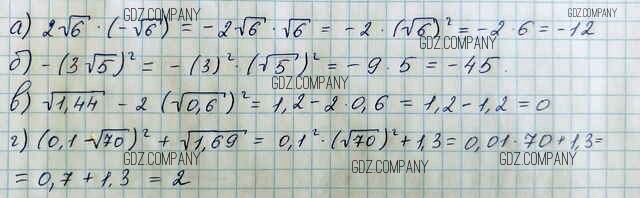 а) 2√6 · (-√6) = -2√6 · √6 = -2 · (√6)² = -2 · 6 = -12
GDZ.COMPANY GDZ.COMPANY GDZ.COMPANY
б) -(3√5)² = -(3)² · (√5)² = -9 · 5 = -45.
GDZ.COMPANY
в) √1,44 - 2(√0,6)² = 1,2 - 2 · 0,6 = 1,2 - 1,2 = 0
GDZ.COMPANY GDZ.COMPANY
г) (0,1-√70)² + √1,69 = 0,1² · (√70)² + 1,3 = 0,01 · 70 + 1,3 =
GDZ.COMPANY GDZ.COMPANY GDZ.COMPANY
= 0,7 + 1,3 = 2